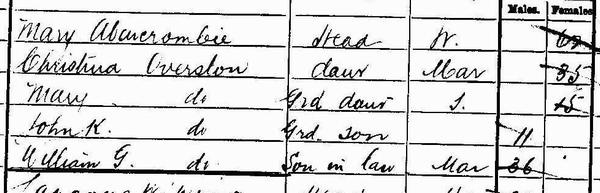 Males. Females
Mary Abercrombie Head W. 62
Christina Overston daur Mar 35
Mary do Grd daur S. 15
John K. do Grd. son 11
William G. do Son in law Mar 36
Head